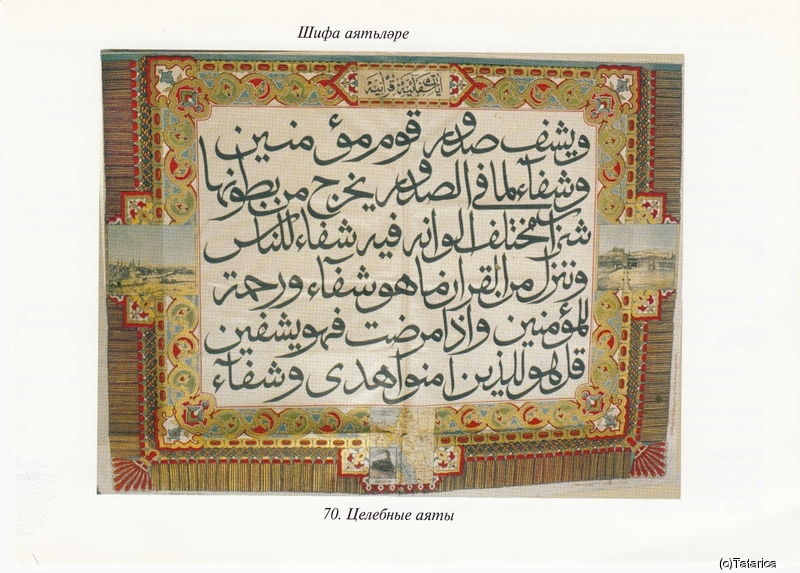 Шифа аятьләре
آيات شفائية قرآنية
ويشف صدور قوم مؤمنين
وشفآء لما في الصدور يخرج من بطونها
شراب مختلف الوانه فيه شفاء للناس
وننزل من القران ما هو شفآء ورحمة
للمؤمنين واذا مرضت فهو يشفين
قل هو للذين امنوا هدى وشفآء
70. Целебные аяты
(c)Tatarica